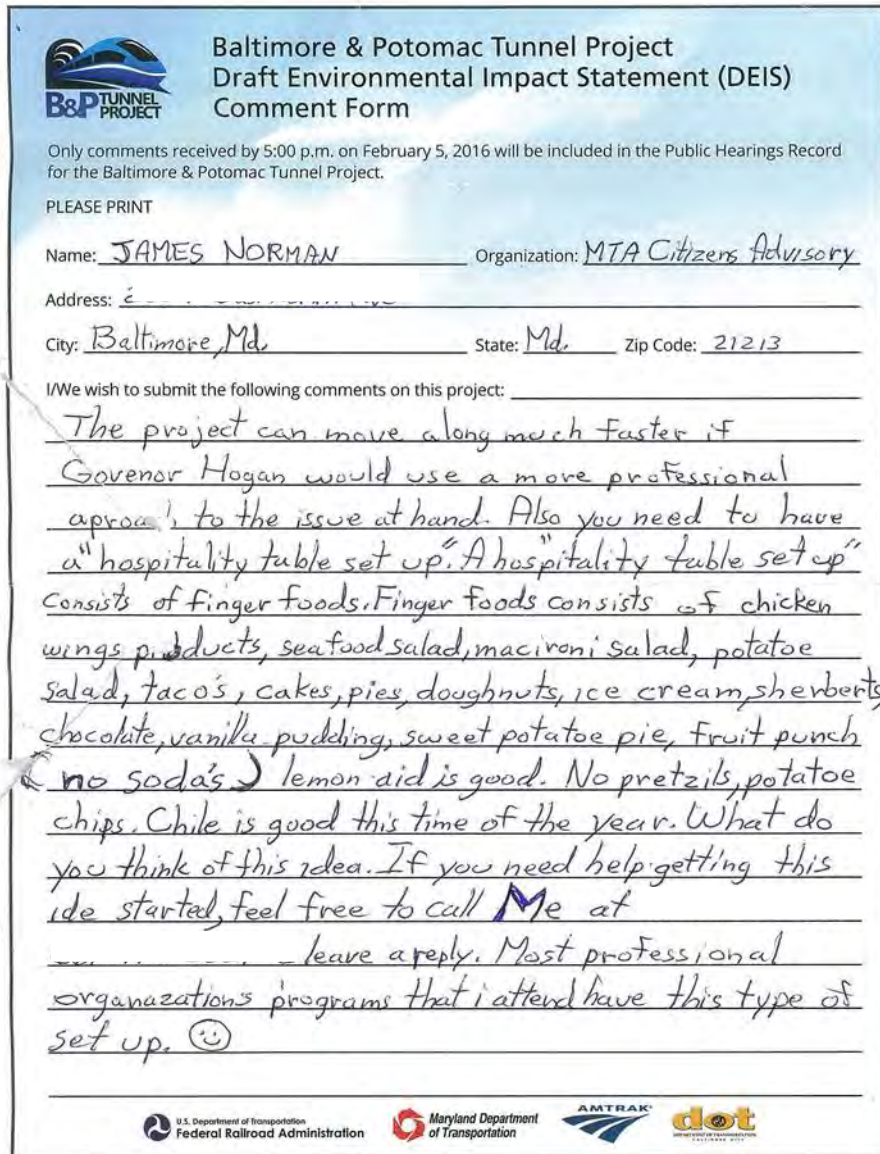 B&P TUNNEL PROJECT
Baltimore & Potomac Tunnel Project
Draft Environmental Impact Statement (DEIS)
Comment Form
Only comments received by 5:00 p.m. on February 5, 2016 will be included in the Public Hearings Record
for the Baltimore & Potomac Tunnel Project.
PLEASE PRINT
Name: JAMES NORMAN Organization: MTA Citizens Advisory
Address:
City: Baltimore, Md. State: Md. Zip Code: 21213
I/We wish to submit the following comments on this project:
The project can move along much faster if
Govenor Hogan would use a more professional
to the issue at hand. Also you need to have
a "hospitality table set up". A "hospitality table set up"
consists of finger foods. Finger foods consists of chicken
wings products, seafood salad, macironi salad, potatoe
salad, taco's, cakes, pies, doughnuts, ice cream, sherberts
chocolate, vanilla pudding, sweet potatoe pie, fruit punch
(no soda's) lemon did is good. No pretzils, potatoe
chips. Chile is good this time of the year. What do
you think of this idea. If you need help getting this
ide started, feel free to call Me at
leave a reply. Most professional
organazations programs that i attend have this type of
set up.
U.S. Department of Transportation
Federal Railroad Administration
Maryland Department
of Transportation
AMTRAK
dot